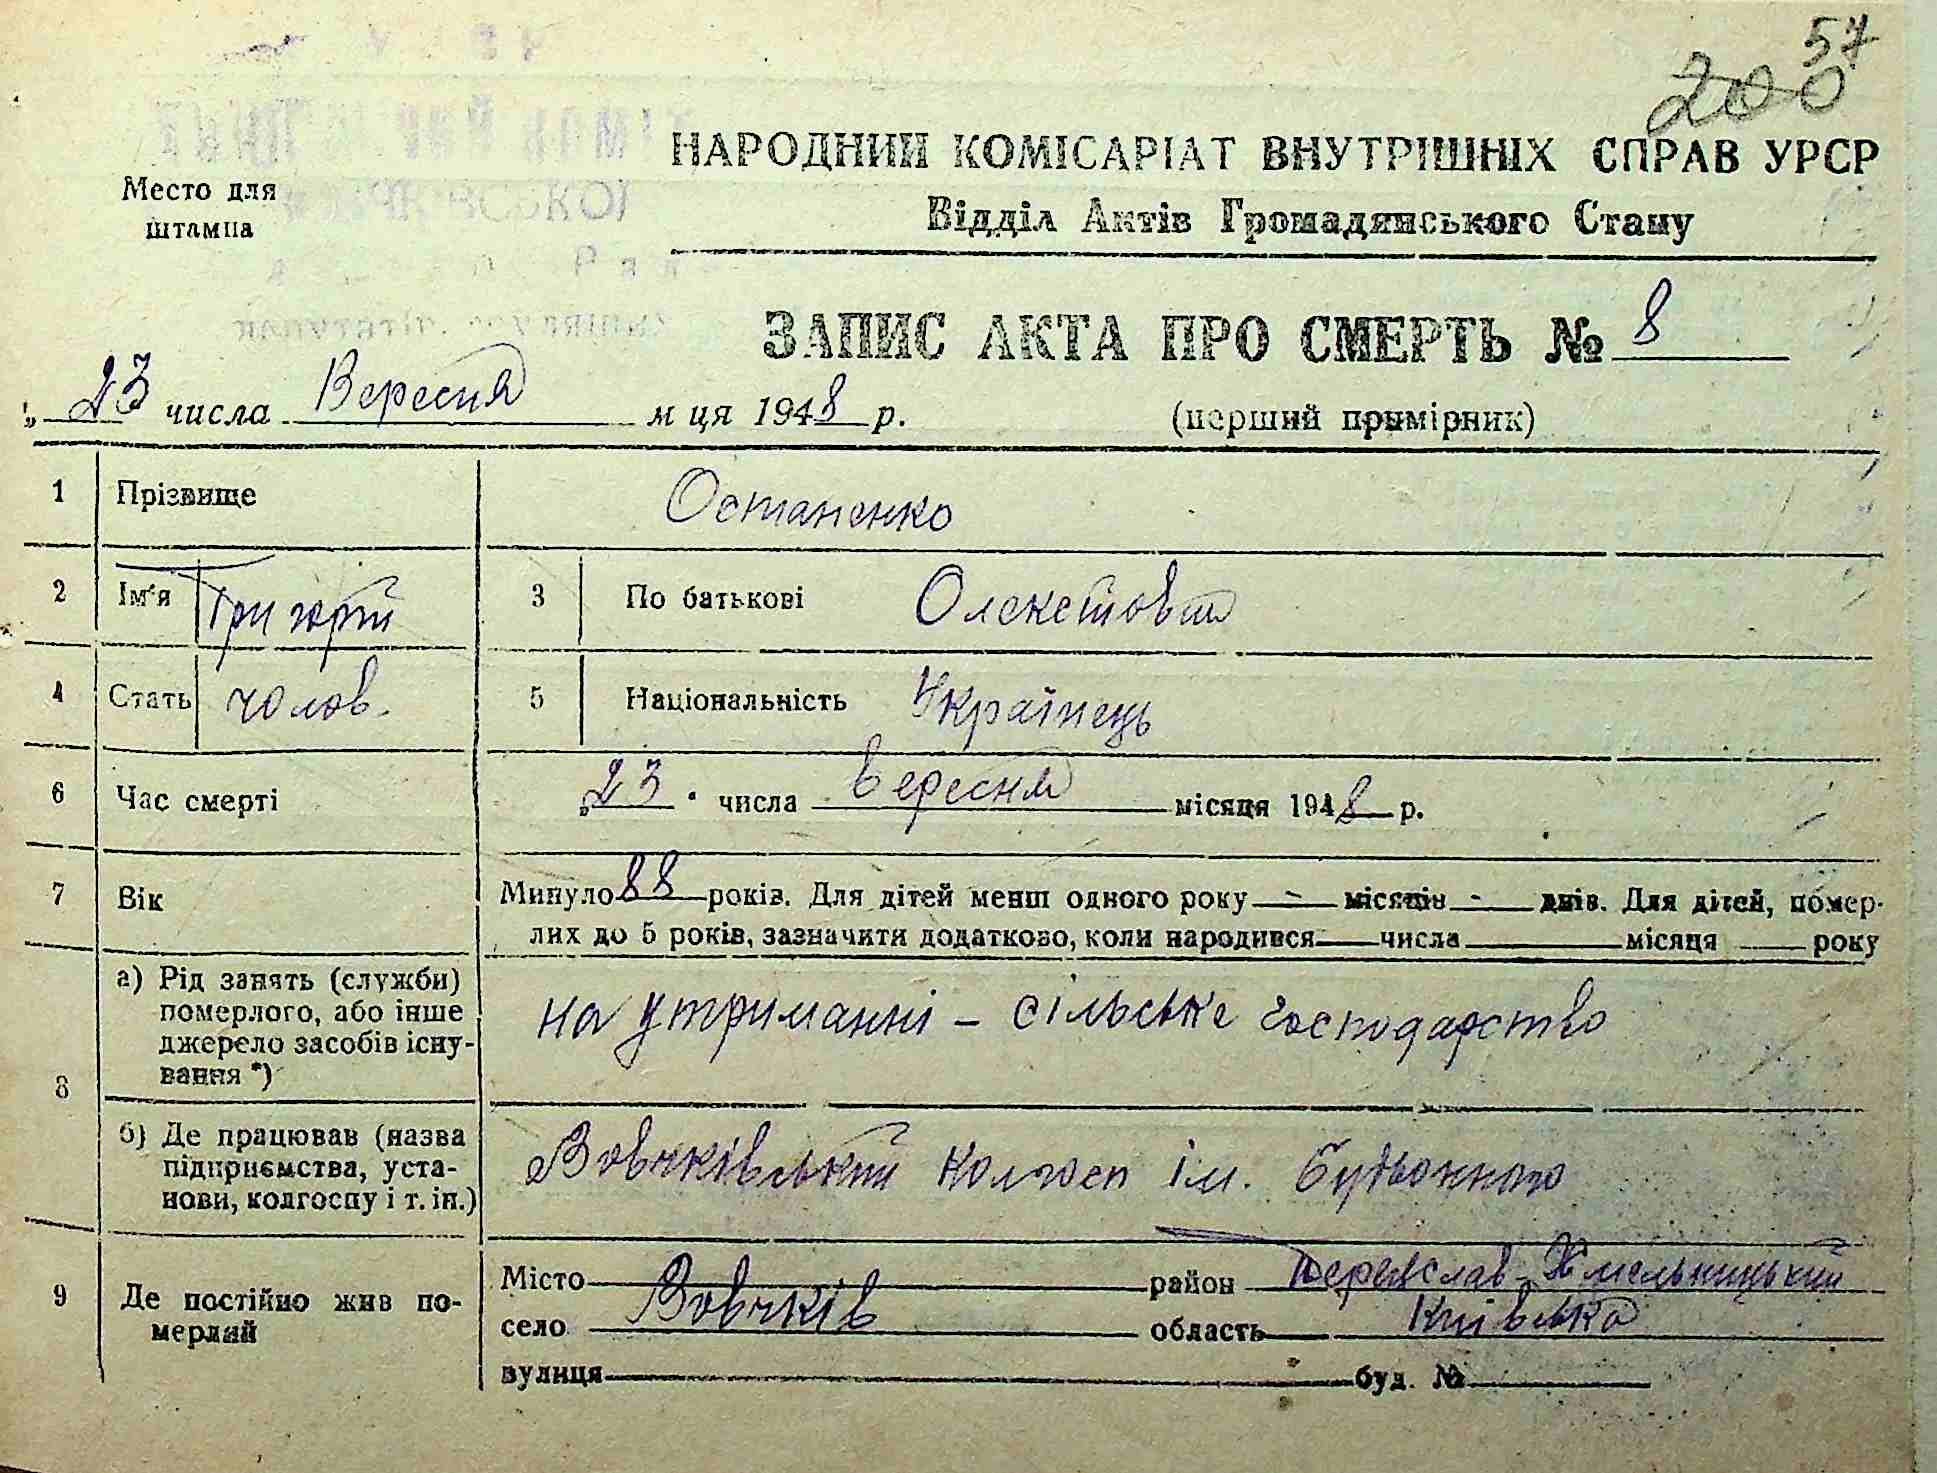 57
200
НАРОДНИЙ КОМІСАРІАТ ВНУТРІШНІХ СПРАВ УРСР
Место для
штампа
Відділ Актів Громадянського Стану
ЗАПИС АКТА ПРО СМЕРТЬ № 8
„23 числа Вересня м ця 1948 р.
(перший примірник)
1 Прізвище Остапенко
2 Ім'я Григорій 3 По батькові
4 Стать чолов. 5 Національність Українець
6 Час смерті „23" числа вересня місяця 1948 р.
7 Вік Минуло 88 років. Для дітей менш одного року - місяців - днів. Для дітей, помер-
лих до 5 років, зазначити додатково, коли народився числа місяця року
8 а) Рід занять (служби)
померлого, або інше
джерело засобів існу-
вання *)
на утриманні – сільське господарство
б) Де працював (назва
підприємства, уста-
нови, колгоспу і т. ін.)
Вовчківський колгосп ім. Будьонного
9 Де постійно жив по-
мерлий
Місто район Переяслав-Хмельницький
село Вовчків область Київська
вулиця буд. №